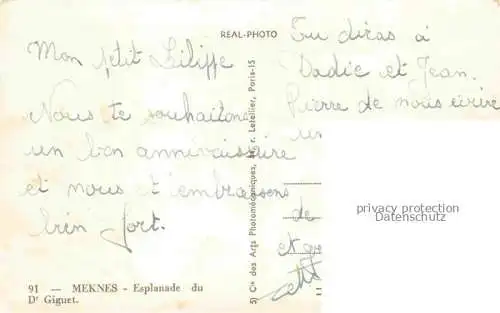 REAL-PHOTO
Mon p'tit
Nous te souhaitons
un bon annivaissaire
et nous t'embrassons
bien fort.
Tu diras à
Dadie et Jean.
Pierre de nous écrire
un
de
et
91 — MEKNES - Esplanade du
Dr Giguet.
Cie des Arts Photomécaniques, r. Letellier, Paris-15
privacy protection
Datenschutz